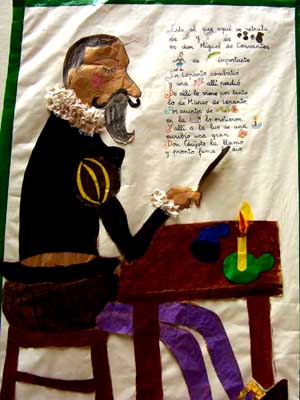 Este al que aquí se retrata
de y de
es don Miguel de Cervantes
de importante
En Lepanto combatió
y una allí perdió
De allí le viene por tanto
lo de Manco de Lepanto.
Por asunto de
en la lo metieron
Y allí a la luz de una
escribió una gran
Don Quijote la llamó
y pronto fama dio